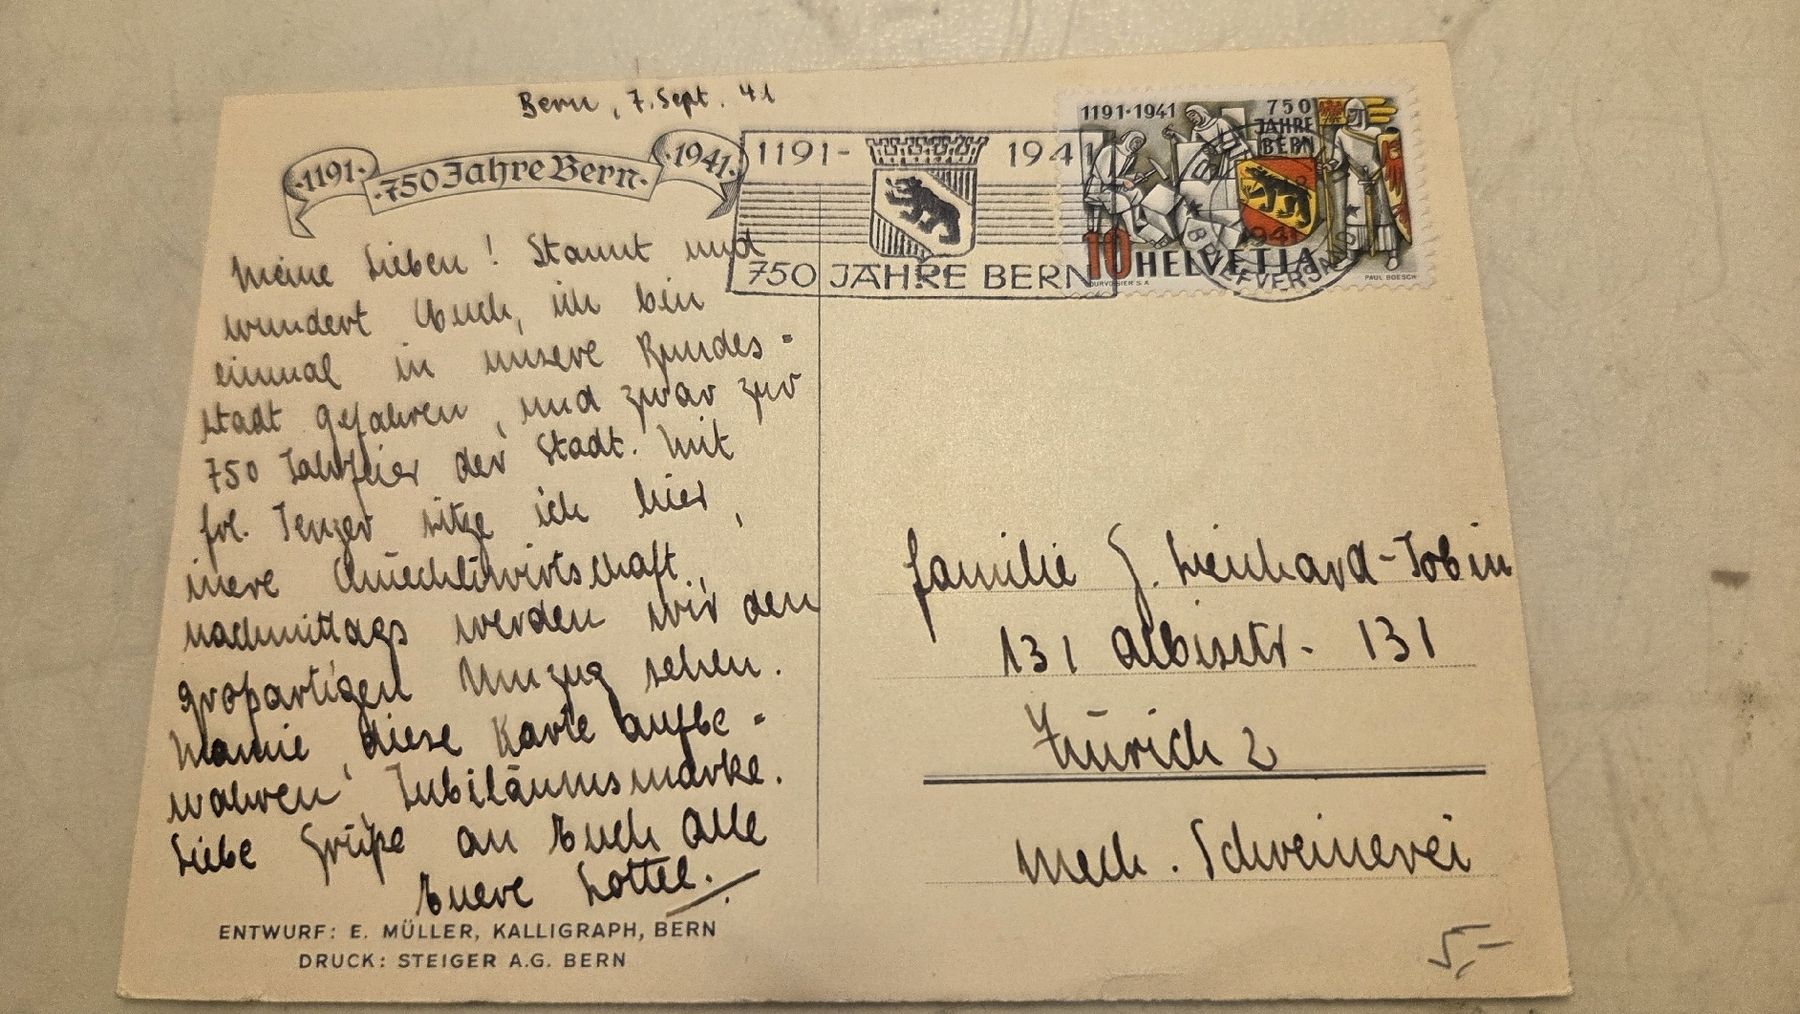 Bern, 7. Sept. 41
·1191· ·750 Jahre Bern· ·1941·
1191- 1941
750 JAHRE BERN
1191·1941 750
JAHRE
BERN
10 HELVETIA
COURVOISIER S.A. PAUL BOESCH
1941
BRIEFVERSAND
Meine Lieben! Staunt und
wundert Euch, ich bin
einmal in unsere Bundes-
stadt gefahren, und zwar zur
750 Jahrfeier der Stadt. Mit
Frl. Tenger sitze ich hier,
Chüechliwirtschaft.,
nachmittags werden wir den
großartigen Umzug sehen.
Mamie, diese Karte aufbe-
wahren, Jubiläumsmarke.
Liebe Grüße an Euch Alle
Euere Lottee.
ENTWURF: E. MÜLLER, KALLIGRAPH, BERN
DRUCK: STEIGER A.G. BERN
Familie G. Lienhard-Tobin
131 Albisstr. 131
Zürich 2
Mech. Schreinerei
5,-